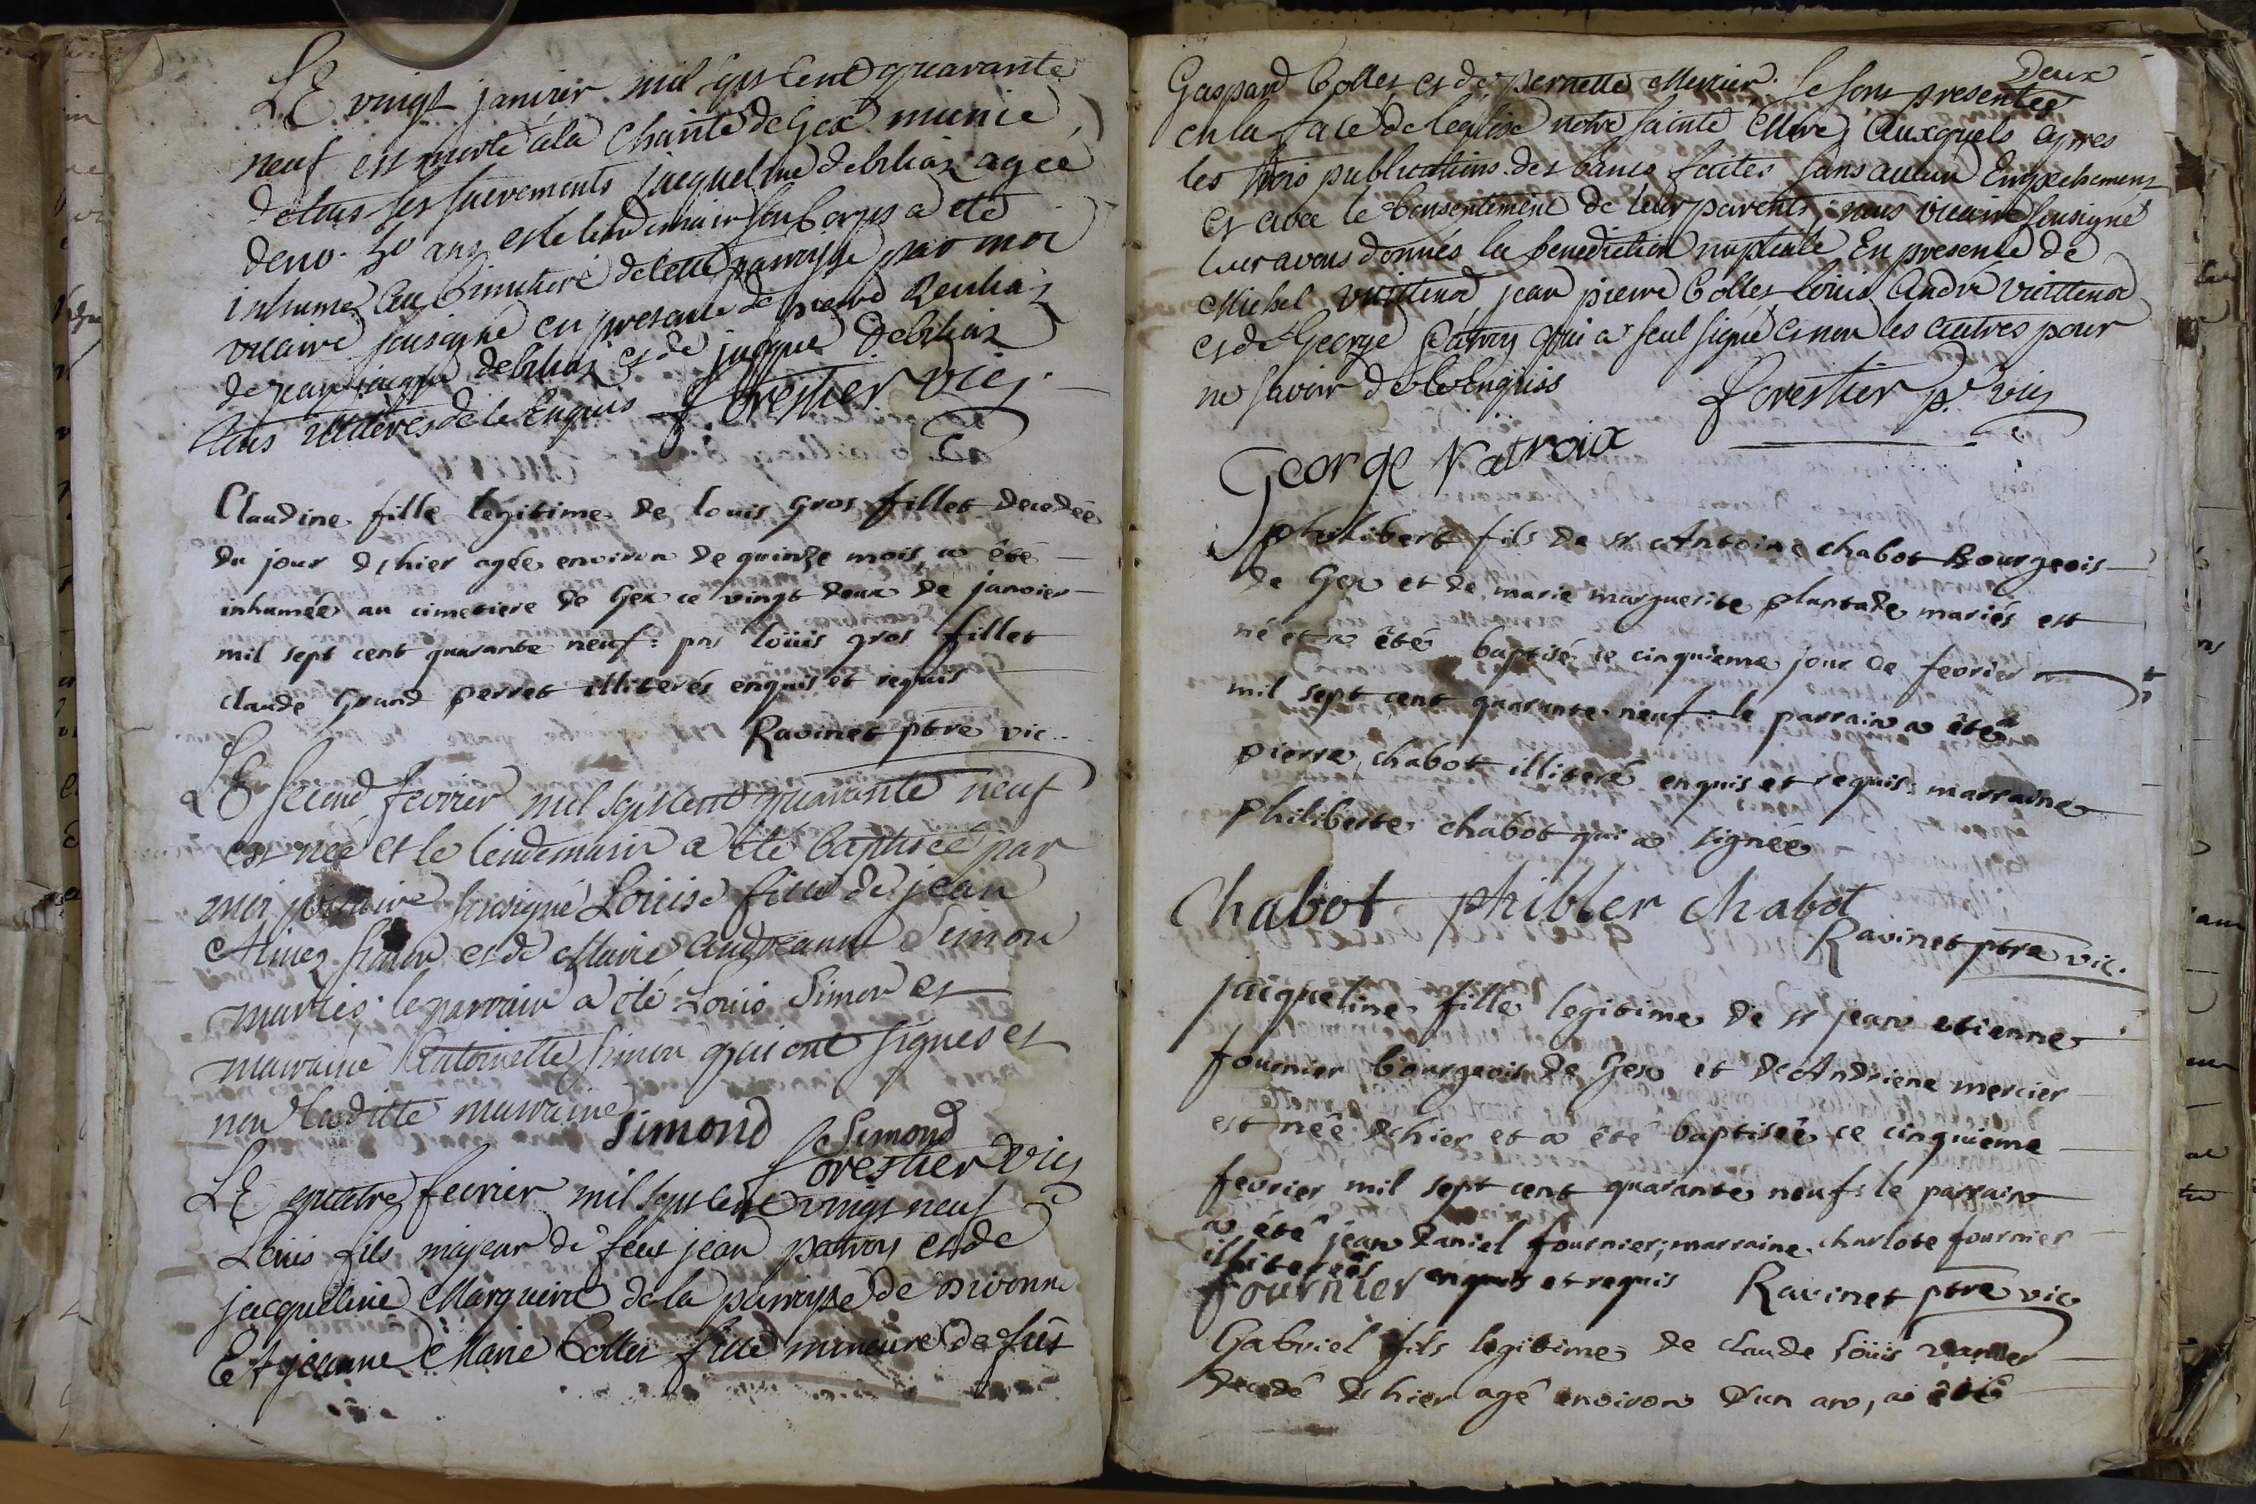 LE vingt janvier mil sept cent quarante
neuf est morte à la Charité de Gex munie
de tous ses sacrements jacqueline debrhas agée
denv. 50 ans et le lendemain son Corps a eté
inhumé au Cimetiere de cette parroisse par moi
vicaire sousigné en presence de pierre
de jean jacque debrhas et de jacque debrhas
tous illiteres de ce Enquis forestier vic.
Claudine fille legitime de louis Gros fillet decedée
du jour dhier agée environ de quinze mois, a été
inhumée au cimetiere de Gex ce vingt deux de janvier
mil sept cent quarante neuf: pns loüis gros fillet
claude Grand perret illiterés enquis et requis
Ravinet ptre vic.
LE second fevrier mil sept cent quarante neuf
est née et le lendemain a été baptisée par
moi vicaire sousigné Loüise fille de jean
et de Marie Simon
mariés. le parrain a été Loüis Simon et
marraine Antoinette simon qui ont signés et
non laditte marraine
Simond Simond
forestier vic
LE quatre fevrier mil sept cent vingt neuf
Loüis fils majeur de feut jean patroy et de
jacqueline Marguerie de la parroisse de Divonne
Et jeanne Marie Collet fille mineure de fut
Deux
Gaspard Collet et de pernette Mercier. se sont presentés
en la face de leglise notre sainte Mere, Auxquels apres
les trois publications des bancs faites sans aucun Enpechement
et avec le Consentement de leur parents, nous vicaire sousigné
leur avons donnés la benediction nuptiale En presence de
Michel vuittenod jean pierre Collet loüis André vuittenod
et de George patroy qui a seul signé et non les autres pour
ne savoir de ce Enquis forestier p. vic
George Patroix
philibert fils de sr Antoine chabot Bourgeois
de Gex et de marie marguerite plantade mariés est
né et a êté baptisé ce cinquieme jour de fevrier
mil sept cent quarante neuf: le parrain a êté
pierre chabot illiteré enquis et requis: marraine
philiberte chabot qui a signée
Chabot phibler chabot
Ravinet ptre vic.
jacqueline fille legitime de sr jean etienne
fournier bourgeois de Gex et dAndriene mercier
est née dhier et a êté baptisée ce cinquieme
fevrier mil sept cent quarante neuf: le parrain
a êté jean daniel fournier; marraine charlote fournier
illiterées enquis et requis Ravinet ptre vic
fournier
Gabriel fils legitime de claude loüis
decedé dhier agé environ dun an, a êté